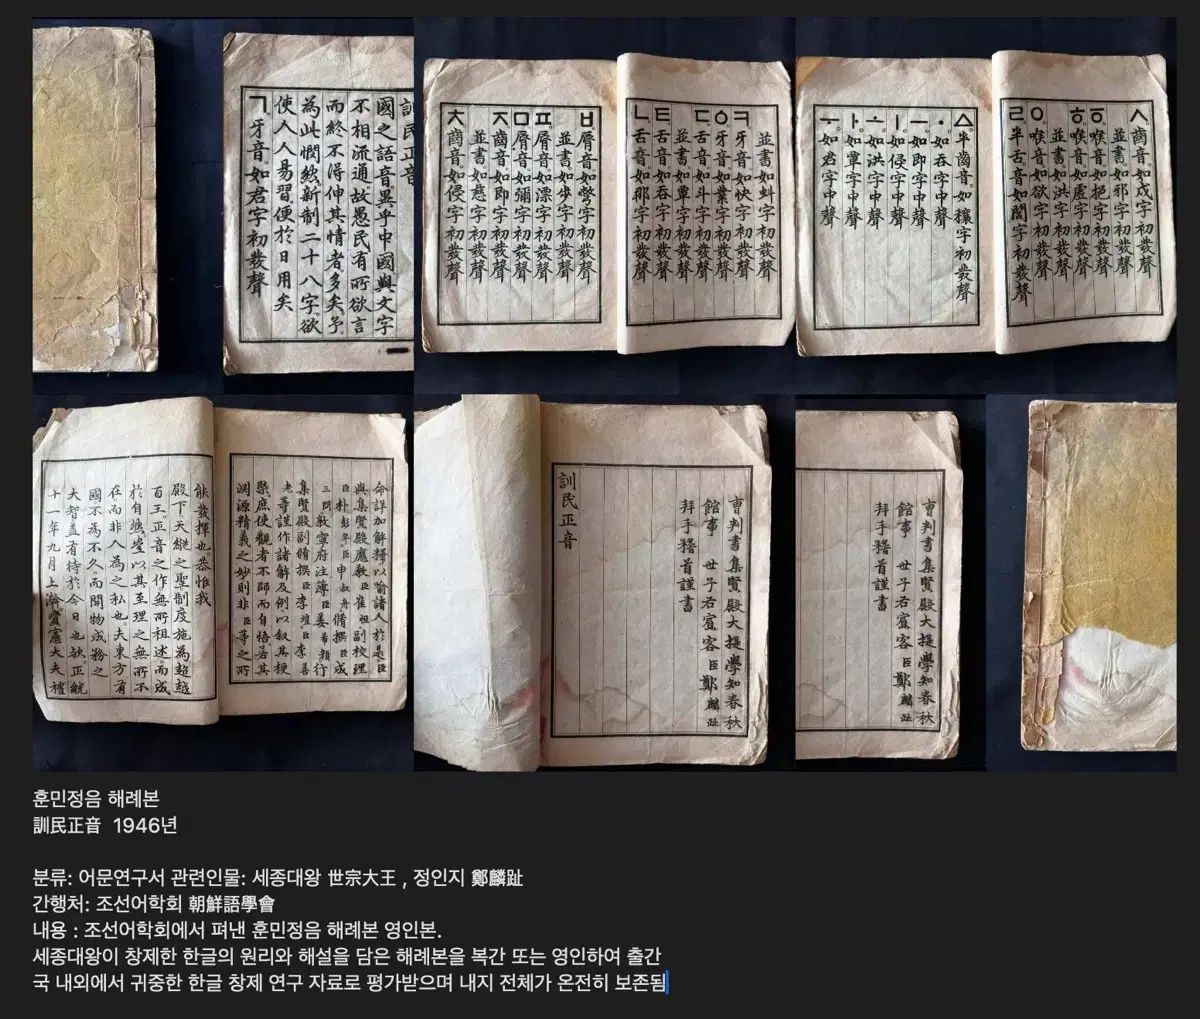 訓民正音
國之語音。異乎中國。與文字
不相流通。故愚民有所欲言
而終不得伸其情者多矣。予
為此憫然。新制二十八字。欲
使人人易習。便於日用矣
ㄱ。牙音。如君字初發聲
並書如虯字初發聲
ㅋ。牙音。如快字初發聲
ㆁ。牙音。如業字初發聲
ㄷ。舌音。如斗字初發聲
並書如覃字初發聲
ㅌ。舌音。如呑字初發聲
ㄴ。舌音。如那字初發聲
ㅂ。脣音。如彆字初發聲
並書如步字初發聲
ㅍ。脣音。如漂字初發聲
ㅁ。脣音。如彌字初發聲
ㅈ。齒音。如即字初發聲
並書如慈字初發聲
ㅊ。齒音。如侵字初發聲
ㅅ。齒音。如戌字初發聲
並書如邪字初發聲
ㆆ。喉音。如挹字初發聲
ㅎ。喉音。如虛字初發聲
並書如洪字初發聲
ㅇ。喉音。如欲字初發聲
ㄹ。半舌音。如閭字初發聲
ㅿ。半齒音。如穰字初發聲
ㆍ。如呑字中聲
ㅡ。如即字中聲
ㅣ。如侵字中聲
ㅗ。如洪字中聲
ㅏ。如覃字中聲
ㅜ。如君字中聲
命詳加解釋。以喩諸人。於是。臣
與集賢殿應教臣崔恒。副校理
臣朴彭年。臣申叔舟。修撰臣成
三問。敦寧府注簿臣姜希顔。行
集賢殿副修撰臣李塏。臣李善
老等。謹作諸解及例。以叙其梗
槩。庶使觀者不師而自悟。若其
淵源精義之妙。則非臣等之所
能發揮也。恭惟我
殿下。天縱之聖。制度施為超越
百王。正音之作。無所祖述。而成
於自然。豈以其至理之無所不
在。而非人為之私也。夫東方有
國。不為不久。而開物成務之
大智。盖有待於今日也欤。正統
十一年九月上澣。資憲大夫禮
曹判書集賢殿大提學知春秋
館事 世子右賓客臣鄭麟趾
拜手稽首謹書
訓民正音
曹判書集賢殿大提學知春秋
館事 世子右賓客臣鄭麟趾
拜手稽首謹書
훈민정음 해례본
訓民正音 1946년
분류: 어문연구서 관련인물: 세종대왕 世宗大王 , 정인지 鄭麟趾
간행처: 조선어학회 朝鮮語學會
내용 : 조선어학회에서 펴낸 훈민정음 해례본 영인본.
세종대왕이 창제한 한글의 원리와 해설을 담은 해례본을 복간 또는 영인하여 출간
국 내외에서 귀중한 한글 창제 연구 자료로 평가받으며 내지 전체가 온전히 보존됨